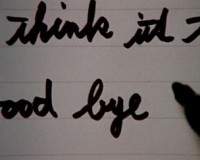 think it'd
ood bye